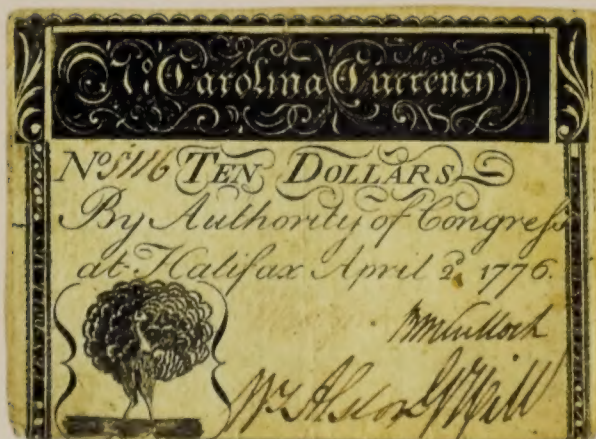 No. Carolina Currency
No 5116 TEN DOLLARS
By Authority of Congreſs
at Halifax April 2d. 1776.
Wm Alston J Hill